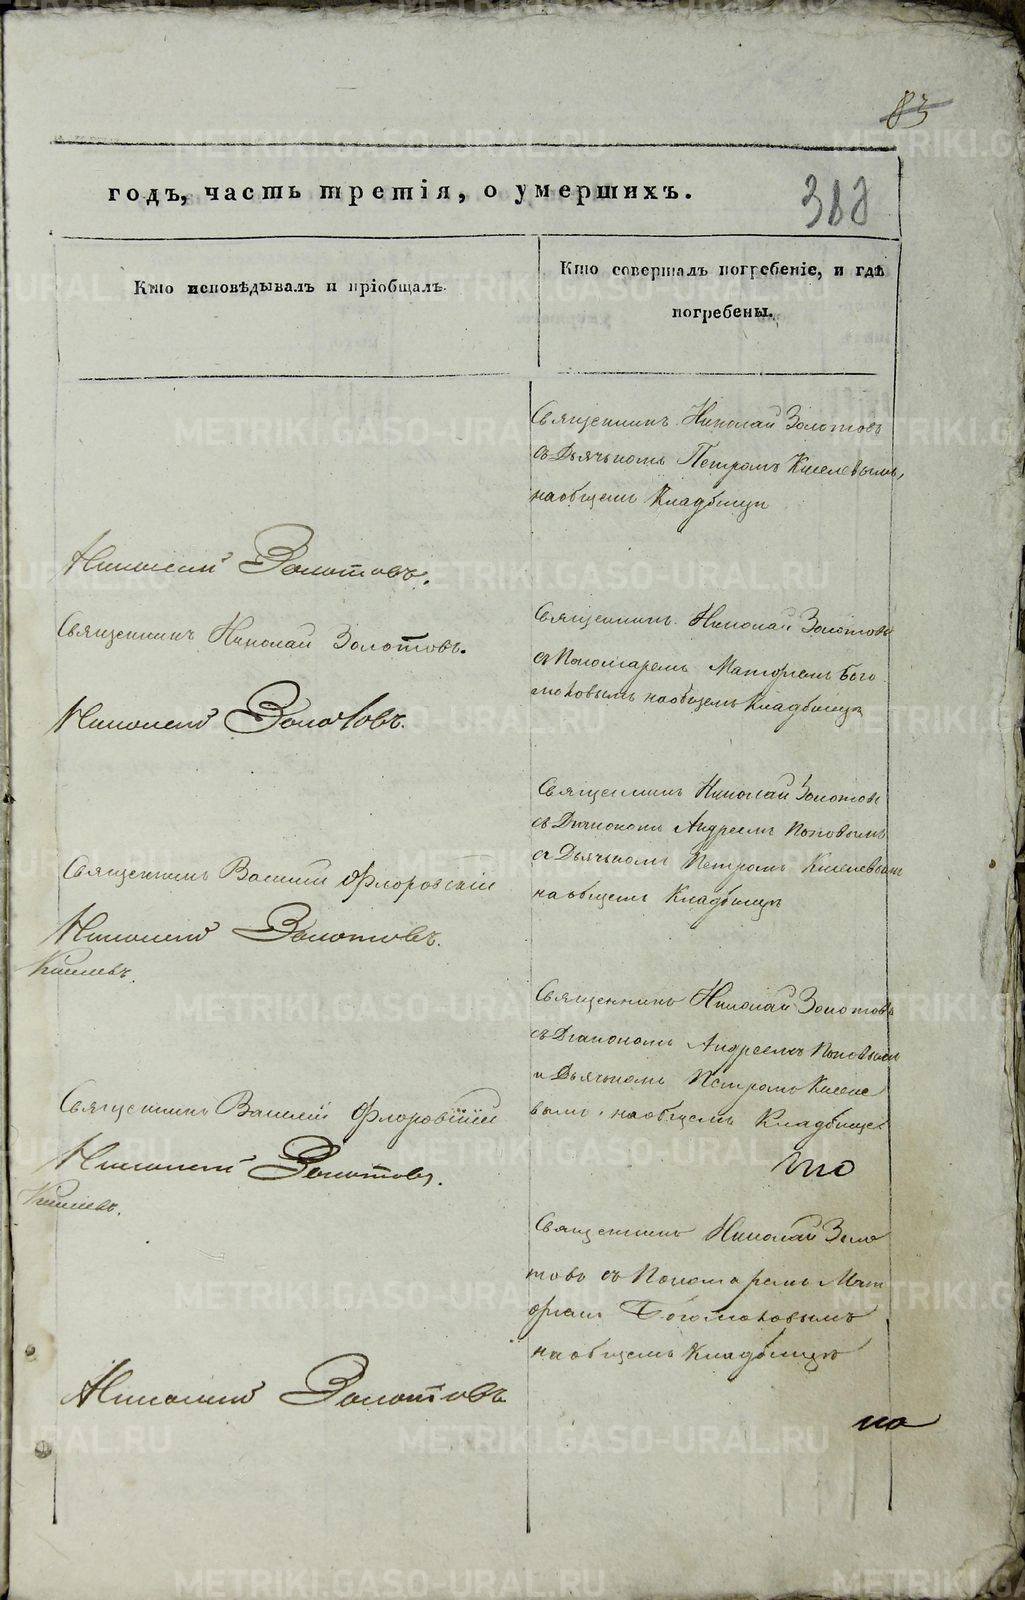 83
годъ, часть третія, о умершихъ.
388
Кто исповѣдывалъ и пріобщалъ.
Кто совершалъ погребеніе, и гдѣ
погребены.
Священникъ Николай Золотовъ
съ Дьячькомъ Петромъ Киселевымъ,
на общемъ Кладбищѣ
Николай Золотовъ.
Священникъ Николай Золотовъ.
Николай Золотовъ.
Священникъ Николай Золотовъ
съ Пономаремъ
на общемъ Кладбищѣ
Священникъ Николай Золотовъ
съ Діакономъ Андреемъ Поповымъ
съ Дьячькомъ Петромъ Киселевымъ
на общемъ Кладбищѣ
Священникъ Василій Флоровскій
Николай Золотовъ.
Киселевъ.
Священникъ Николай Золотовъ
съ Діакономъ Андреемъ Поповымъ
и Дьячькомъ Петромъ Кисе
вымъ, на общемъ Кладбищѣ
Священникъ Василій
Николай Золотовъ.
Киселевъ.
Священникъ Николай Золо
товъ съ Пономаремъ
на общемъ Кладбищѣ
Николай Золотовъ
по
METRIKI.GASO-URAL.RU